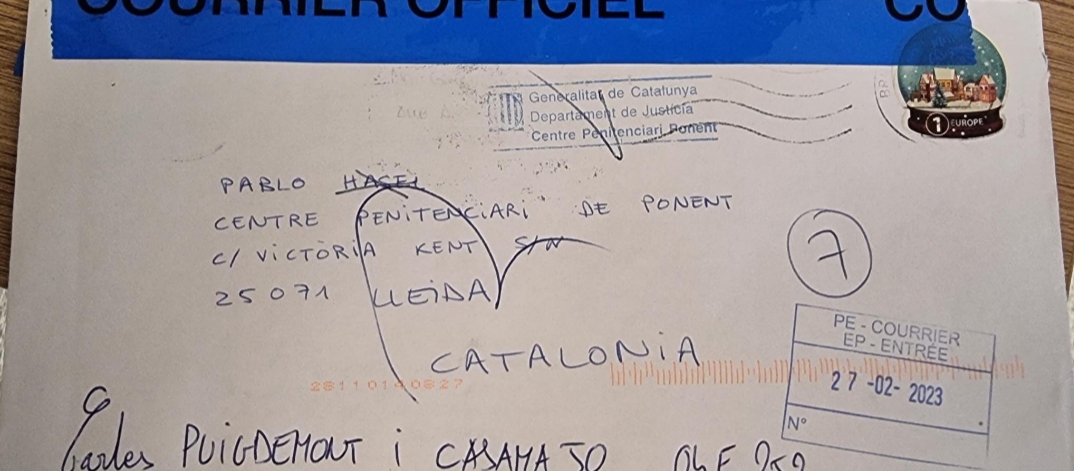 COURRIER OFFICIEL CO
Generalitat de Catalunya
Departament de Justícia
Centre Penitenciari Ponent
1 EUROPE
PABLO HASEL
CENTRE PENITENCIARI DE PONENT
C/ VICTÒRIA KENT S/N
25071 LLEIDA
7
CATALONIA
PE - COURRIER
EP - ENTRÉE
27 -02- 2023
N°
Carles PUIGDEMONT i CASAMAJO